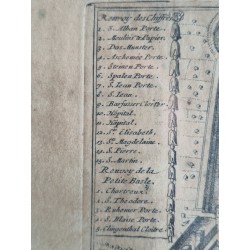 Renvoy des Chiffres
1. S. Alban Porte.
2. Moulins a Papier.
3. Das Munster.
4. Aschemer Porte.
5. Steinen Porte.
6. Spalen Porte.
7. S. Iean Porte.
8. S. Iean.
9. Barfusser Cloitre
10. Hôpital.
11. Hôpital.
12. Ste. Elisabeth.
13. Ste. Magdelaine.
14. S. Pierre.
15. S. Martin.
Renvoy de la
Petite Basle.
1. Chartreux.
2. S. Theodore.
3. Riehemer Porte.
4. S. Blaise Porte.
5. Clingenthal Cloitre.